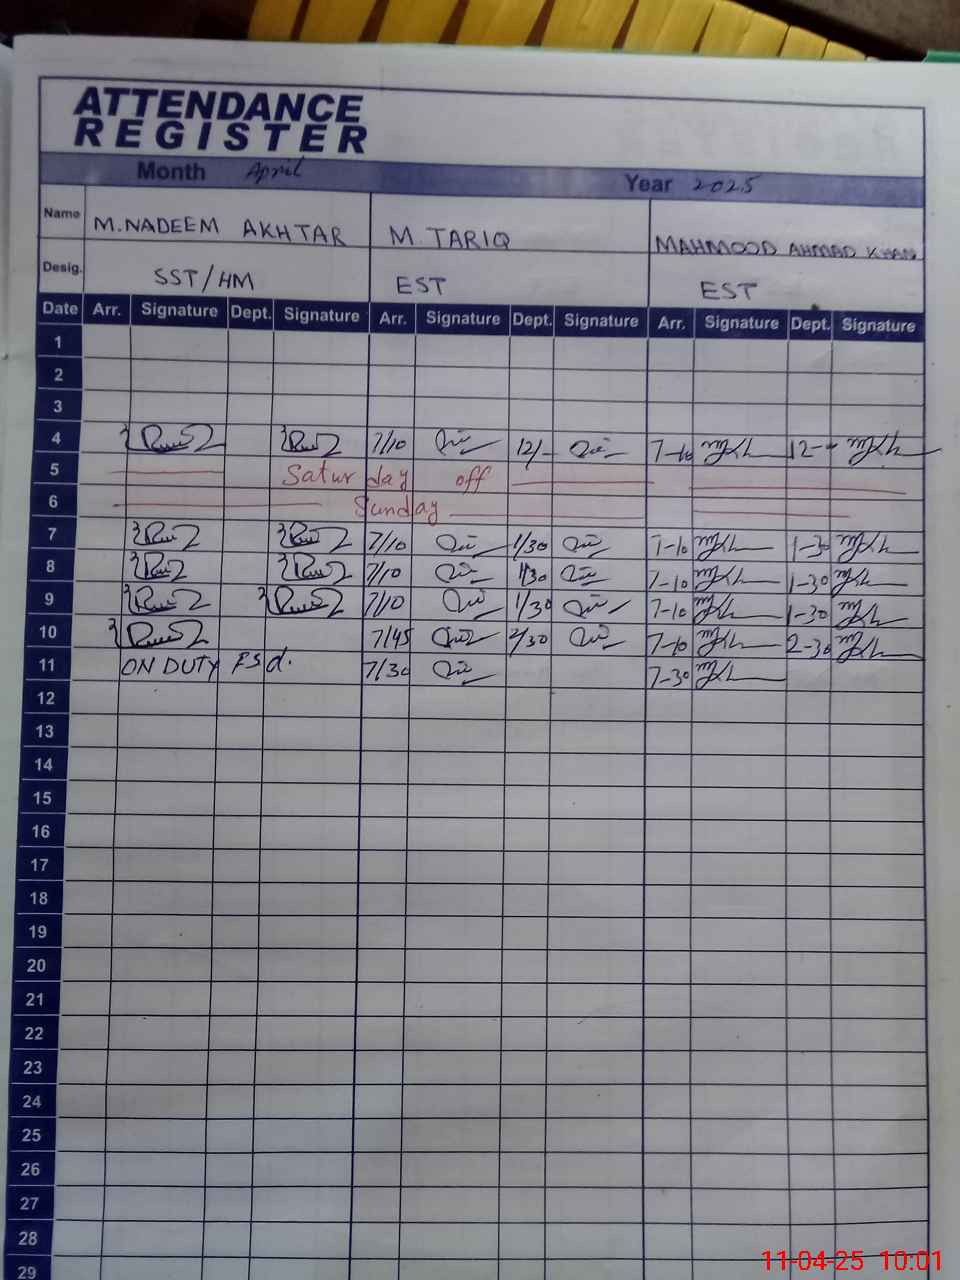 ATTENDANCE
REGISTER
Month April Year 2025
Name M.NADEEM AKHTAR M. TARIQ MAHMOOD AHMAD KHAN
Desig. SST/HM EST EST
Date Arr. Signature Dept. Signature Arr. Signature Dept. Signature Arr. Signature Dept. Signature
1
2
3
4 7/10 12/- 7-10 12-
5 Saturday off
6 Sunday
7 7/10 1/30 7-10 1-30
8 7/10 1/30 7-10 1-30
9 7/10 1/30 7-10 1-30
10 7/45 2/30 7-10 2-30
11 ON DUTY FSd. 7/30 7-30
12
13
14
15
16
17
18
19
20
21
22
23
24
25
26
27
28
29
11-04-25 10:01